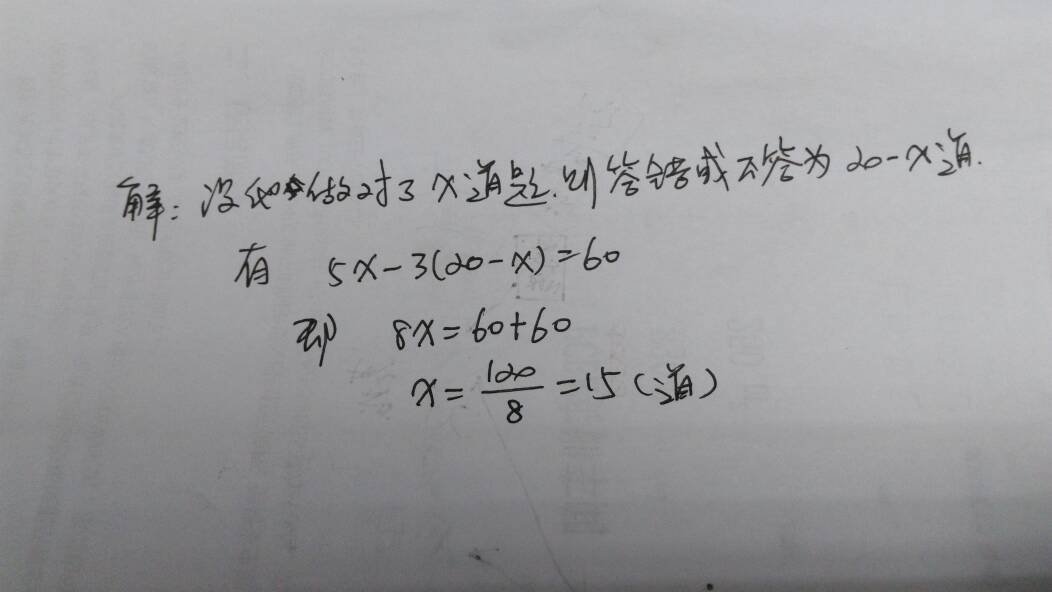 解：设他做对了x道题.则答错或不答为20-x道.
有 5x-3(20-x)=60
即 8x=60+60
x=120/8=15(道)